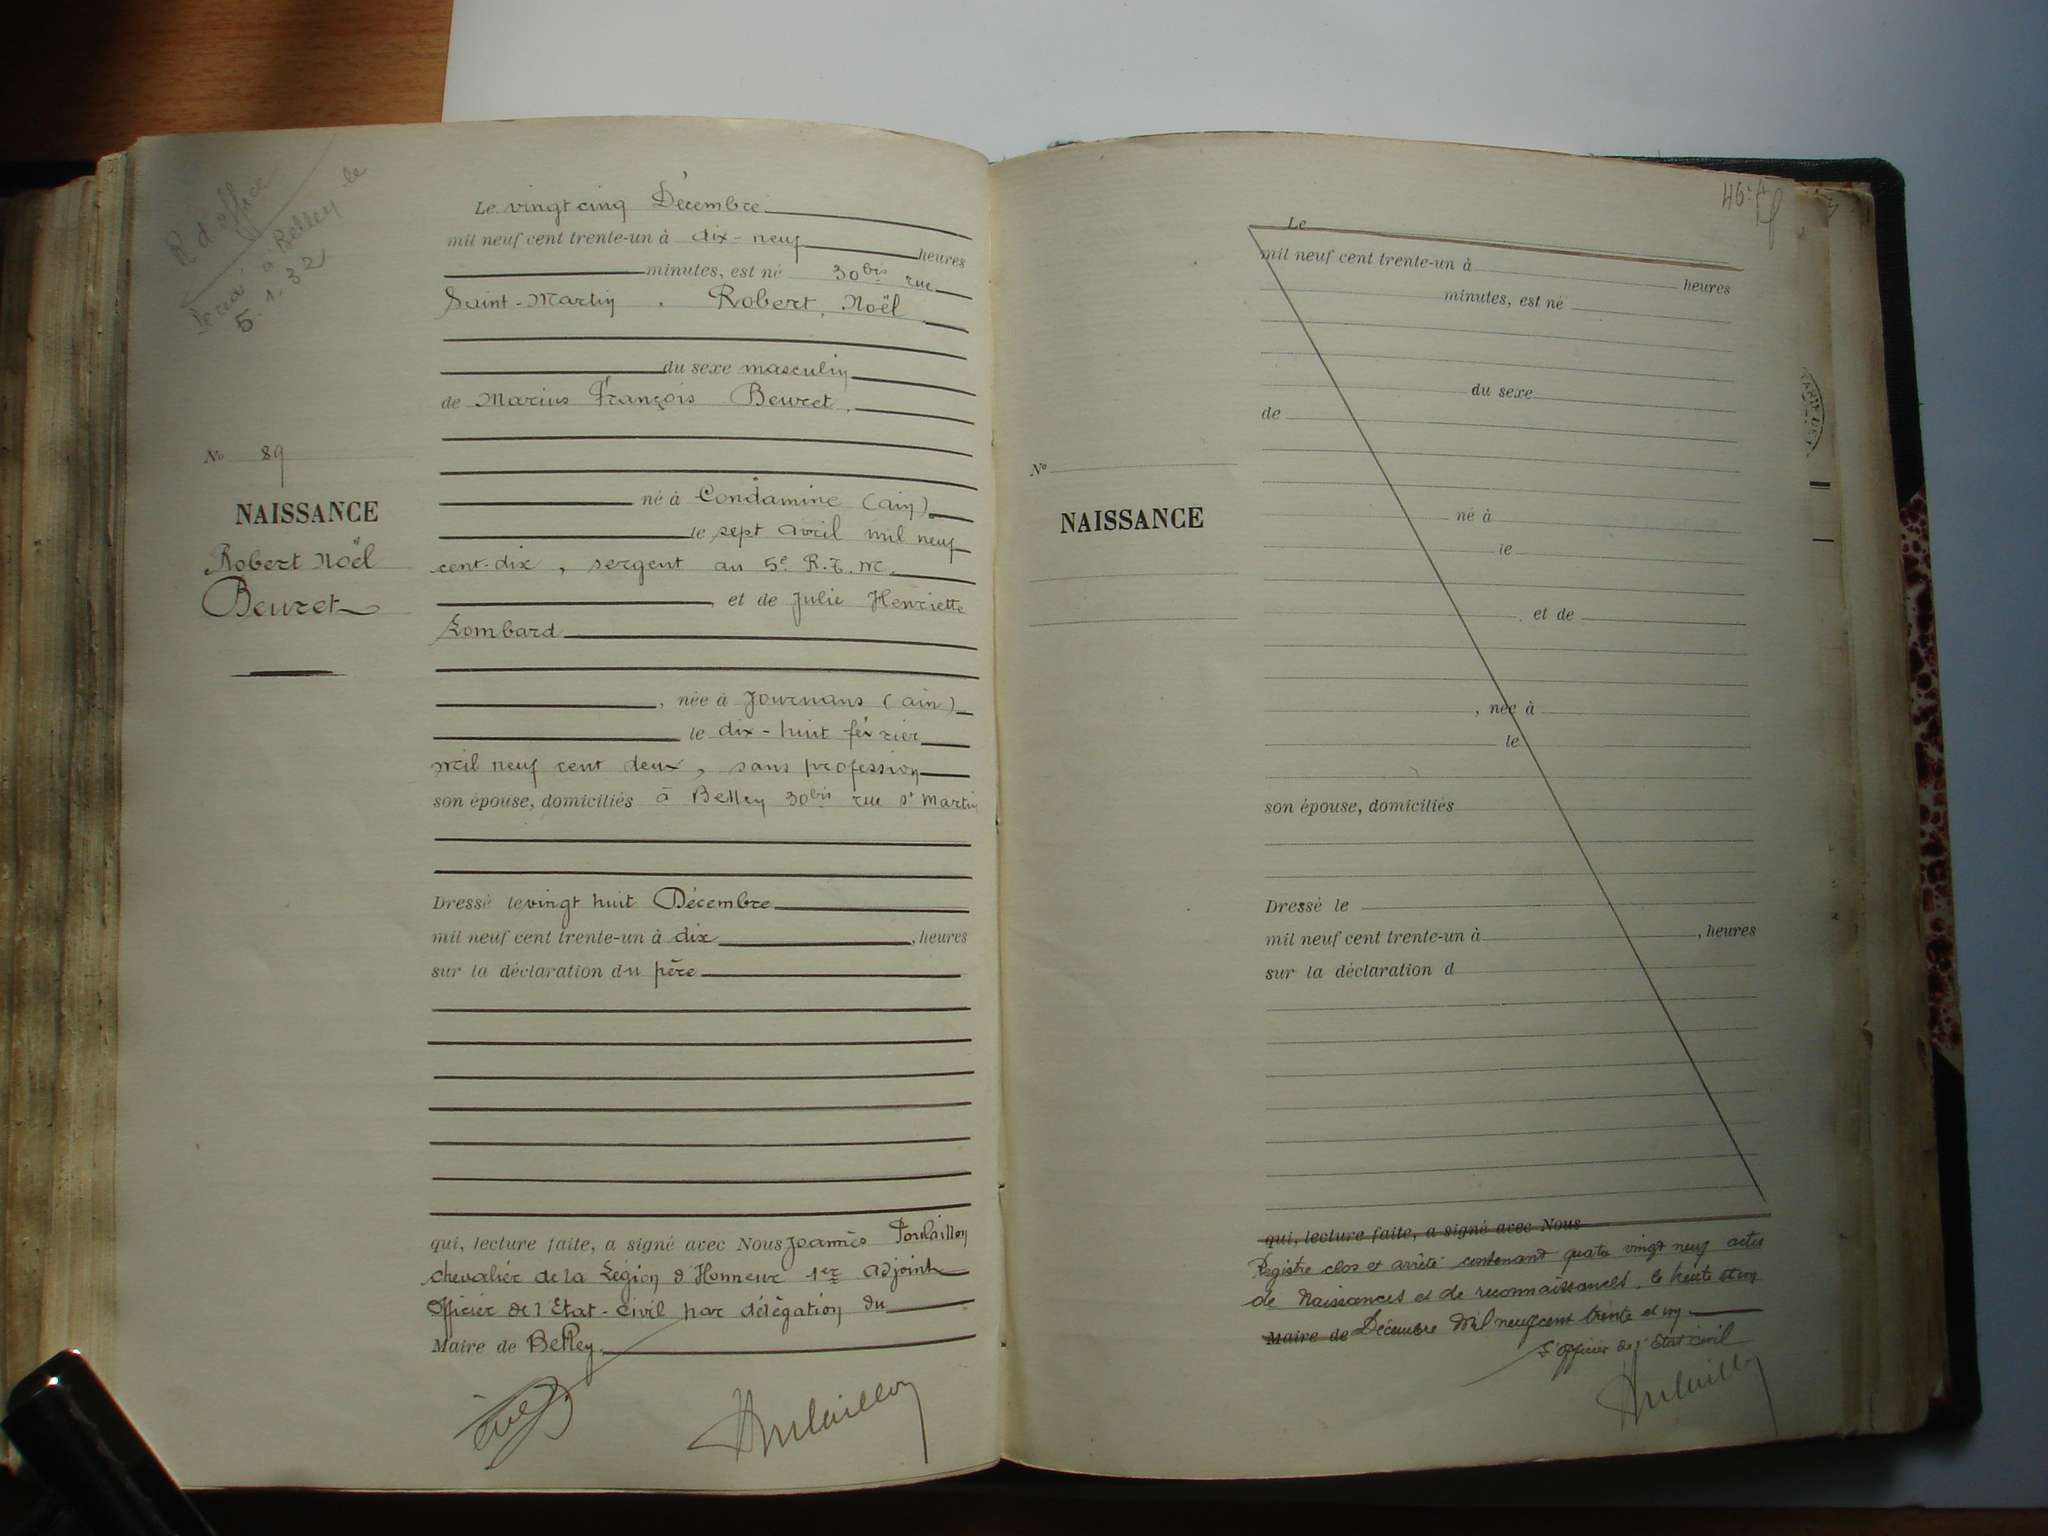 R d'office
Décédé à Belley le
5.1.32
Le vingt cinq Décembre
mil neuf cent trente-un à dix-neuf heures
minutes, est né 30 bis rue
Saint-Martin, Robert, Noël
du sexe masculin
de Marius François Beuret,
né à Condamine (ain),
le sept avril mil neuf
cent-dix, sergent au 5e R.T.M.
et de Julie Henriette
Lombard
, née à Journans (ain)
le dix-huit février
mil neuf cent deux, sans profession
son épouse, domiciliés à Belley 30 bis rue St Martin
Dressé le vingt huit Décembre
mil neuf cent trente-un à dix, heures
sur la déclaration du père
qui, lecture faite, a signé avec Nous Joannès Poulaillon
chevalier de la Légion d'Honneur 1er adjoint
Officier de l'Etat-civil par délégation du
Maire de Belley.
No 89
NAISSANCE
Robert Noël
Beuret
46
Le
mil neuf cent trente-un à heures
minutes, est né
du sexe
de
né à
le
, et de
, née à
le
son épouse, domiciliés
Dressé le
mil neuf cent trente-un à , heures
sur la déclaration d
qui, lecture faite, a signé avec Nous
Registre clos et arrêté contenant quatre vingt neuf actes
de Naissances et de reconnaissances, le trente et un
Maire de Décembre Mil neuf cent trente et un
L'Officier de l'Etat civil
No
NAISSANCE